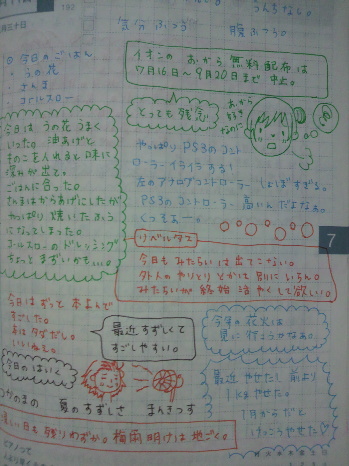 気分ふつう
腹ふつう。
今日のごはん
・うの花
・さんま
・コールスロー
イオンの おから 無料配布は
7月16日〜9月20日まで 中止。
とっても 残念
おから
好き
なのに
今日は うの花 うまく
いった。油あげと
きのこを入れると味に
深みが出て、
ごはんに合った。
さんまはからあげにしたが
やっぱり 焼いたふう
になってしまった。
コールスローのドレッシング
ちょっと まずいかも…。
やっぱり PS3のコント
ローラー イライラする!
左のアナログコントローラー しょぼすぎる。
PS3のコントローラー 高いんだよなぁ。
くっそぉー。
7
今日も みたらいは 出てこない。
外人のやりとり とかって 別に いらん。
みたらいが 終始 活やくして欲しい。
今日は ずっと 本よんで
すごした。
最近 すずしくて
すごしやすい。
今年 花火は
見に行こうかなぁ。
今日のはいく
つかのまの 夏のすずしさ まんきつす
最近 やせたし 前より
1kgやせた。
1月からだと
けっこうやせた
涼しい日も 残りわずか。梅雨明けは 地ごく。